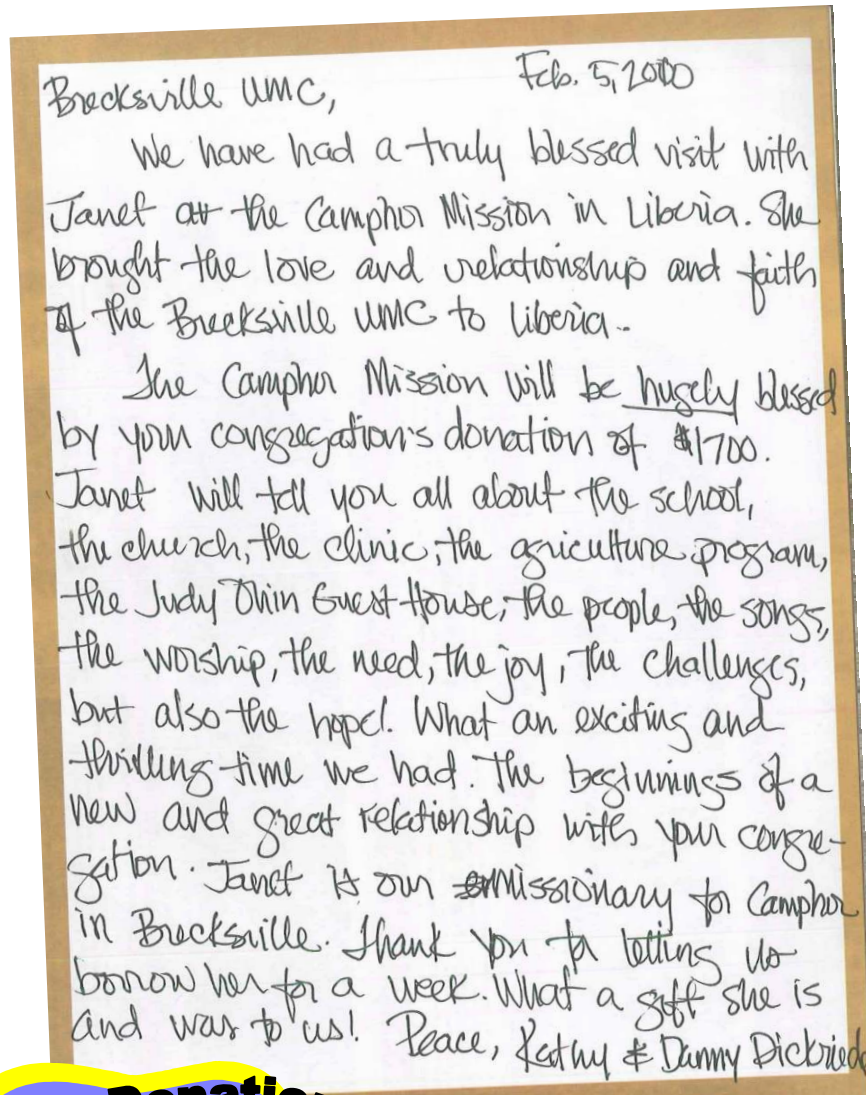 Feb. 5, 2000
Brecksville UMC,
We have had a truly blessed visit with
Janet at the Camphor Mission in Liberia. She
brought the love and relationship and faith
of the Brecksville UMC to Liberia.
The Camphor Mission will be hugely blessed
by your congregation's donation of $1700.
Janet will tell you all about the school,
the church, the clinic, the agriculture program,
the Judy Guest House, the people, the songs,
the worship, the need, the joy, the challenges,
but also the hope! What an exciting and
thrilling time we had. The beginnings of a
new and great relationship with your congre-
gation. Janet is our missionary for Camphor
in Brecksville. Thank you for letting us
borrow her for a week. What a gift she is
and was to us! Peace, Kathy & Danny